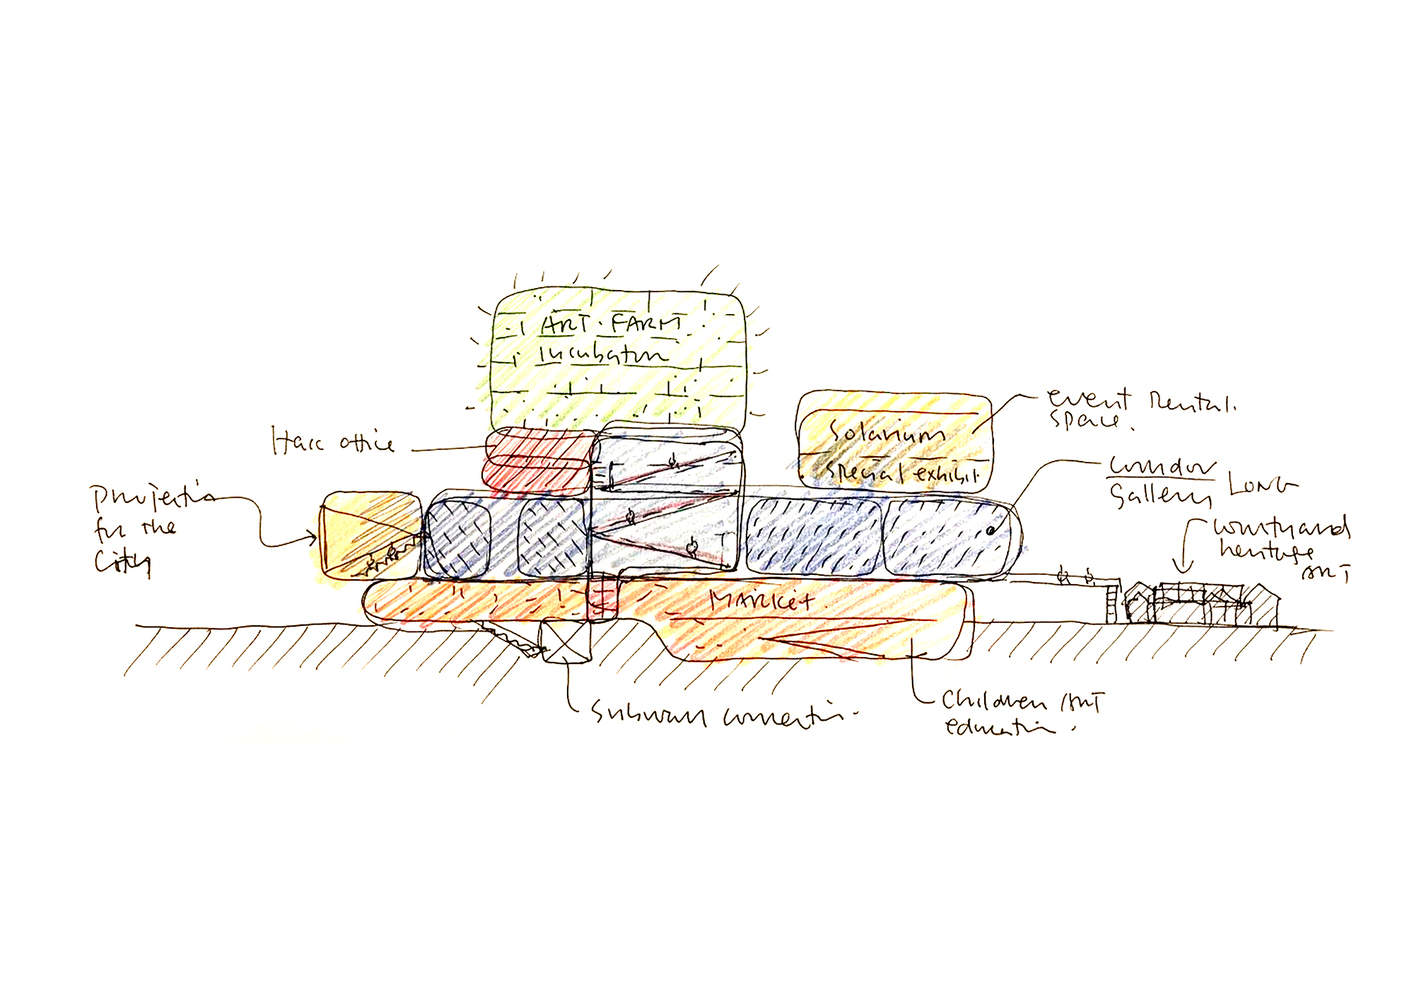 ART. FARM
incubator
event rental.
space.
solarium
special exhibit
office
projection
for the
City
corridor
Gallery LONG
courtyard
heritage
ART
MARKET
subway connection.
Children ART
education.